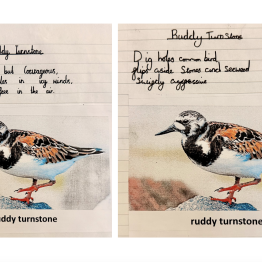 ddy Turnstone
but Courageous,
in icy winds,
in the air.
ddy turnstone
Ruddy Turnstone
Dig holes common bird,
flips aside Stones and Seaweed
aggressive
ruddy turnstone